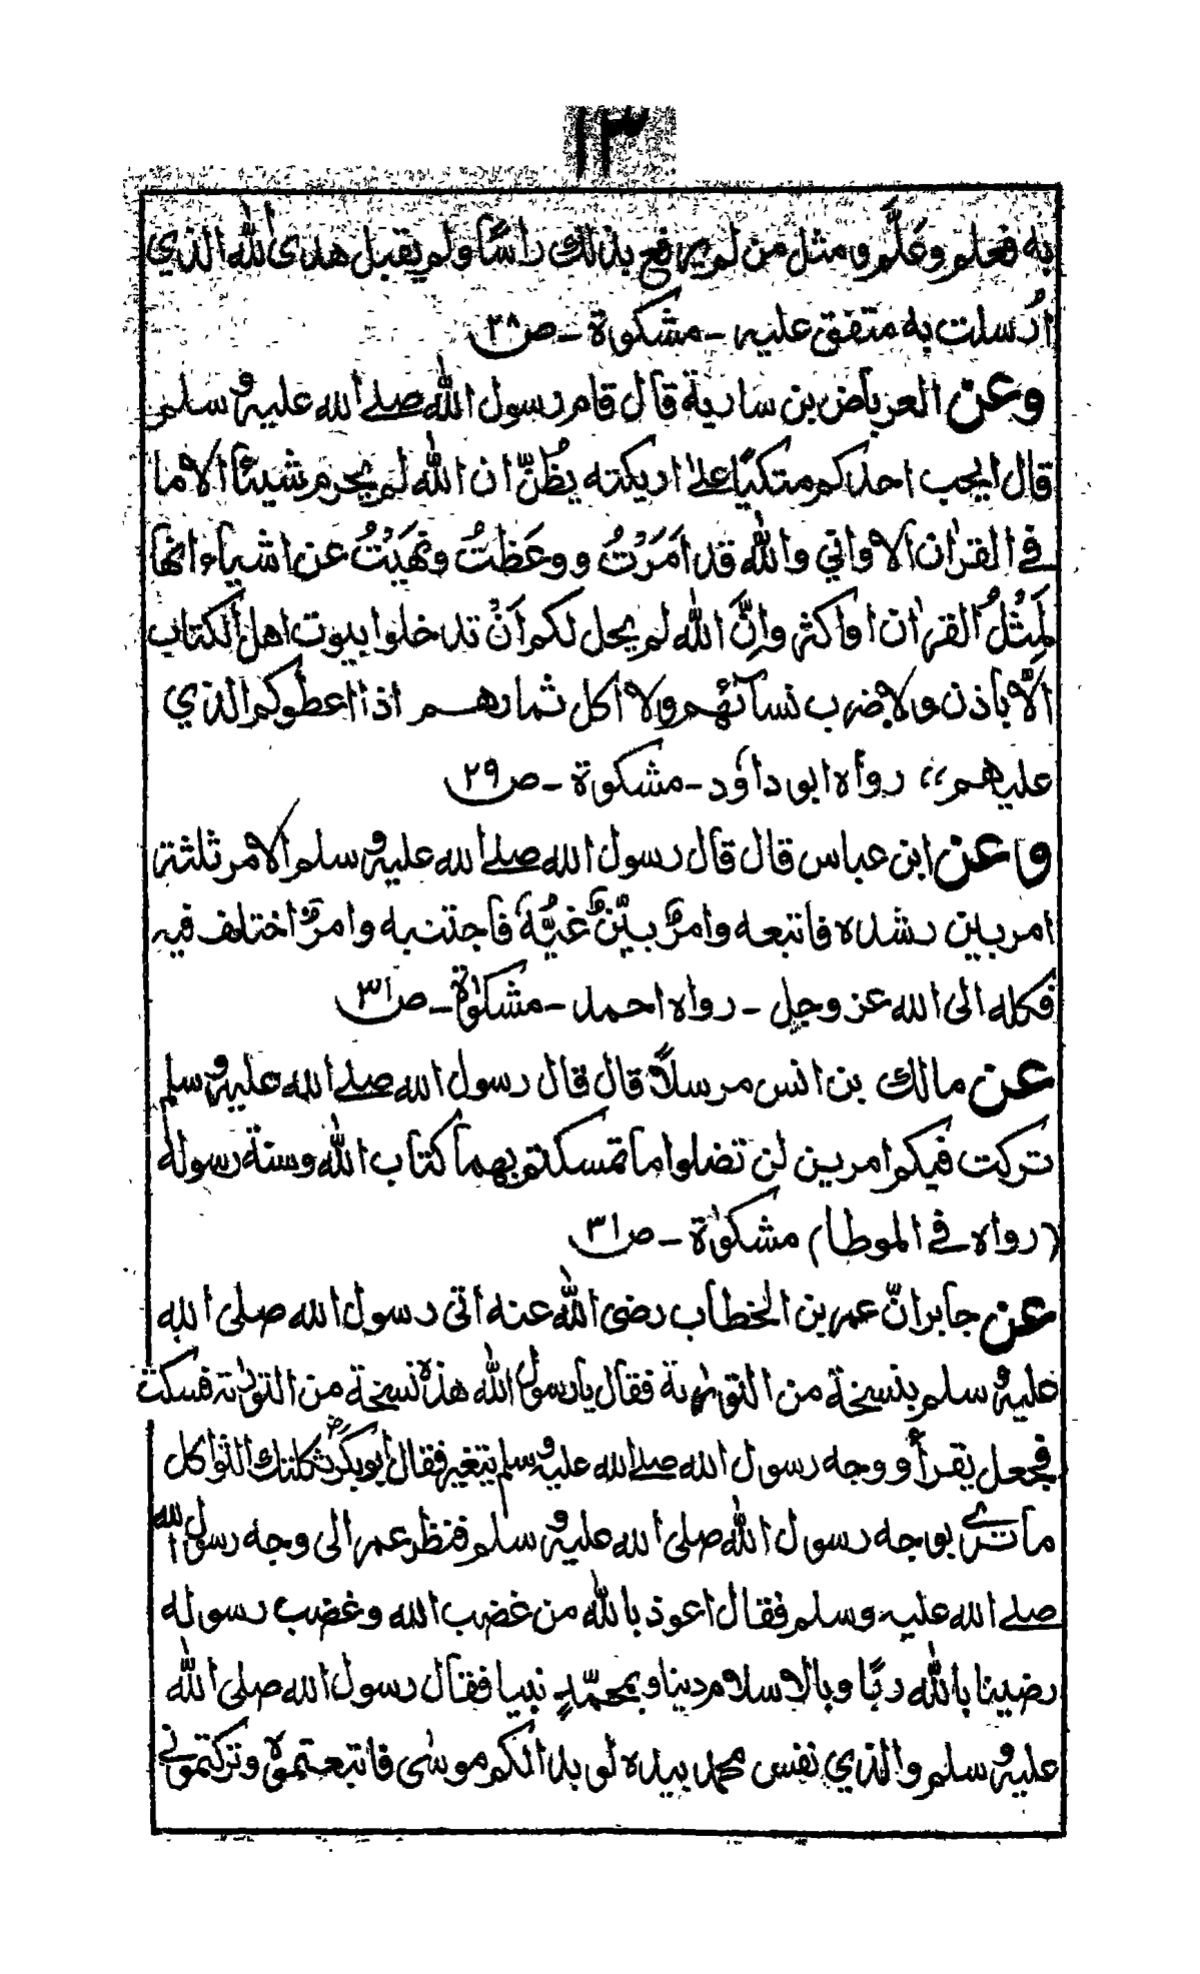 ١٣
به فعلم وعَلَّم ومثل من لم يرفع بذلك راسًا ولم يقبل هدى الله الذي
اُرسلت به متفق عليه ـ مشكوة ـ ص٣٨
وعن العرباض بن سارية قال قام رسول الله صلى الله عليه وسلم
قال ايحب احدكم متكيًا على اريكته يظُنّ ان الله لم يحرم شيئًا الا ما
في القرآن الا واني والله قد امَرْتُ ووعَظتُ ونَهَيْتُ عن اشياء انها
لَمِثْلُ القرآن او اكثر وانَّ الله لم يحل لكم اَنْ تدخلوا بيوت اهل الكتاب
الّا باذن ولا ضرب نسائهم ولا اكل ثمارهم اذا اعطوكم الذي
عليهم،، رواه ابو داود ـ مشكوة ـ ص٢٩
وعن ابن عباس قال قال رسول الله صلى الله عليه وسلم الامر ثلثة
امر بين رشده فاتبعه وامرٌ بيّنٌ غَيُّهٗ فاجتنبه وامرٌ اختلف فيه
فكله الى الله عز وجل ـ رواه احمد ـ مشكوٰة ـ ص٣١
عن مالك بن انس مرسلاً قال قال رسول الله صلى الله عليه وسلم
تركت فيكم امرين لن تضلوا ما تمسكتم بهما كتاب الله وسنة رسوله
(رواه في الموطا) مشكوٰة ـ ص٣١
عن جابر انّ عمر بن الخطاب رضى الله عنه اتى رسول الله صلى الله
عليه وسلم بنسخة من التورٰىة فقال يارسول الله هذه نسخة من التورٰىة فسكت
فجعل يقرأ ووجه رسول الله صلى الله عليه وسلم يتغير فقال ابوبكرؓ ثكلتك الثواكل
ما ترى بوجه رسول الله صلى الله عليه وسلم فنظر عمر الى وجه رسول الله
صلى الله عليه وسلم فقال اعوذ بالله من غضب الله وغضب رسوله
رضينا بالله ربًا وبالاسلام دينا وبمحمّدٍ نبيا فقال رسول الله صلى الله
عليه وسلم والذي نفس محمد بيده لو بدا لكم موسٰى فاتبعتموه وتركتموني